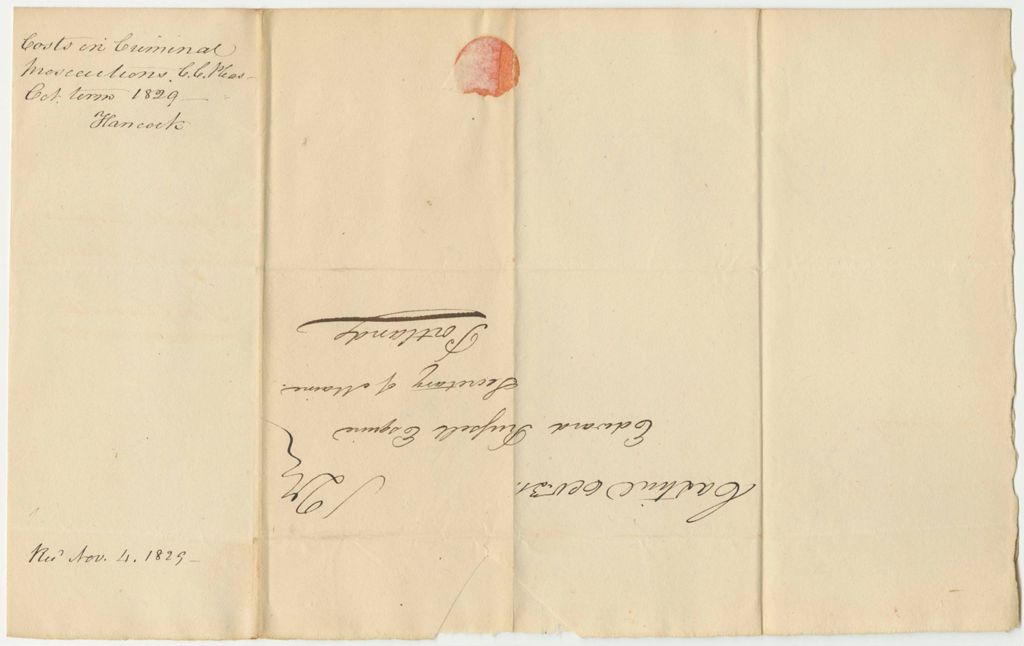 Costs in Criminal
Prosecutions, C.C. Pleas -
Oct. term 1829 -
Hancock
Rec'd Nov. 4. 1829 -
Castine Oct 31.
Edward Russell Esquire
Secretary of Maine
Portland